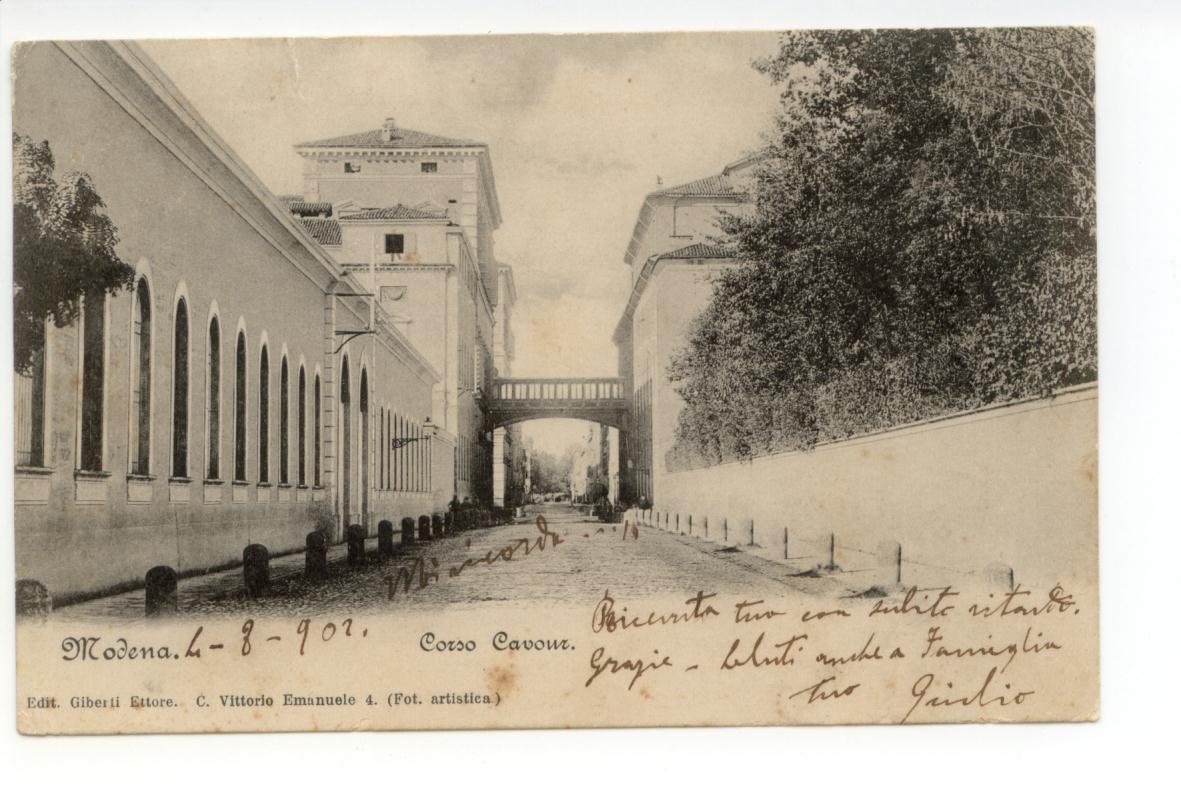 Mi ricorda ...
Modena. 4-8-902.
Corso Cavour.
Ricevuta tua con subito ritardo.
Grazie - Saluti anche a Famiglia
tuo Giulio
Edit. Giberti Ettore. C. Vittorio Emanuele 4. (Fot. artistica)